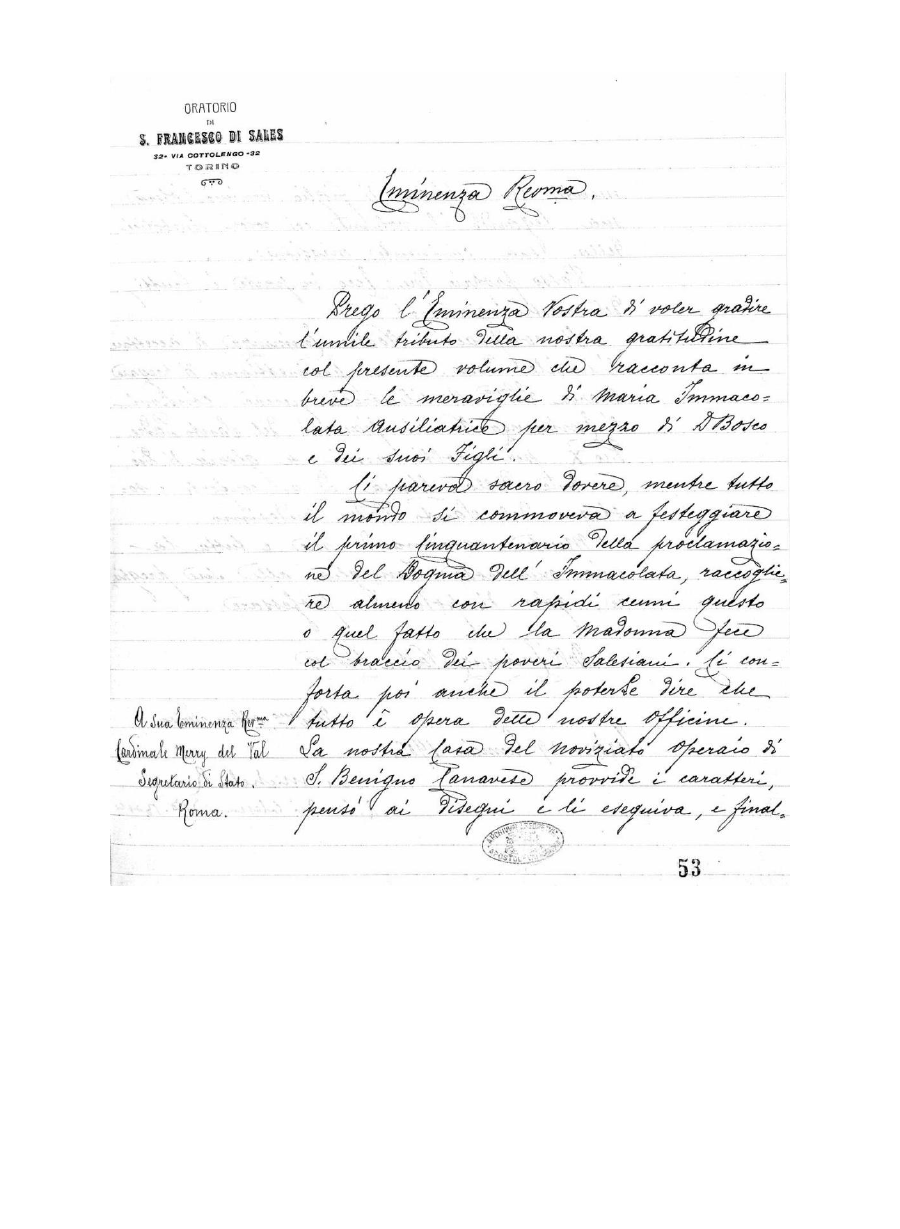 ORATORIO
DI
S. FRANCESCO DI SALES
32- VIA COTTOLENGO -32
TORINO
Eminenza Reoma.
Prego l'Eminenza Vostra di voler gradire
l'umile tributo della nostra gratitudine
col presente volume che racconta in
breve le meraviglie di Maria Immaco=
lata Ausiliatrice per mezzo di D Bosco
e dei suoi Figli.
Ci pareva sacro dovere, mentre tutto
il mondo si commoveva a festeggiare
il primo Cinquantenario della proclamazio=
ne del Dogma dell' Immacolata, raccoglie=
re almeno con rapidi cenni questo
o quel fatto che la Madonna fece
col braccio dei poveri Salesiani. Ci con=
forta poi anche il poterLe dire che
tutto è opera delle nostre officine.
La nostra Casa del noviziato operaio di
S. Benigno Canavese provvide i caratteri,
pensò ai disegni e li eseguiva, e final=
A Sua Eminenza Rev.ma
Cardinale Merry del Val
Segretario di Stato.
Roma.
53